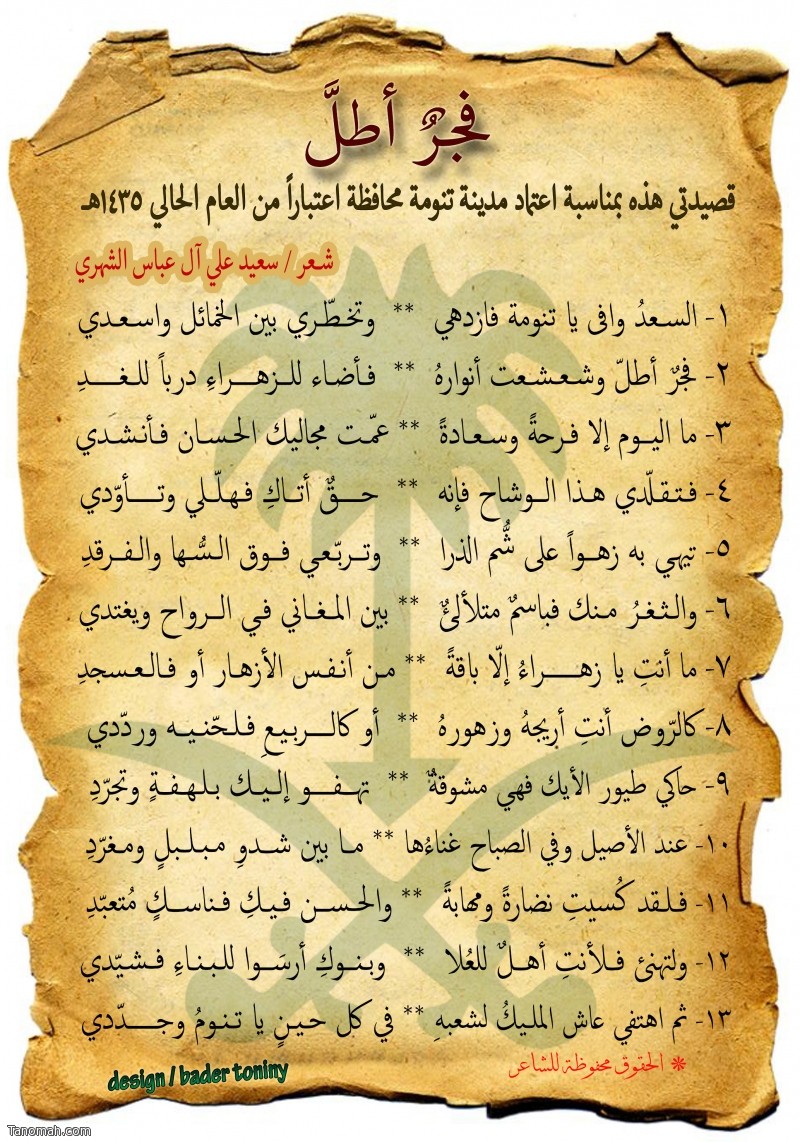 فجرٌ أطلَّ
قصيدتي هذه بمناسبة اعتماد مدينة تنومة محافظة اعتباراً من العام الحالي ١٤٣٥هـ
شعر / سعيد علي آل عباس الشهري
١- السعدُ وافى يا تنومة فازدهي ** وتخطّري بين الخمائل واسعدي
٢- فجرٌ أطلّ وشعشعت أنوارهُ ** فأضاء للزهراءِ درباً للغدِ
٣- ما اليوم إلا فرحةً وسعادةً ** عمّت مجاليك الحسان فأنشدي
٤- فتقلّدي هذا الوشاح فإنه ** حقٌ أتاكِ فهلّلي وتأوّدي
٥- تيهي به زهواً على شُم الذرا ** وتربّعي فوق السُّها والفرقدِ
٦- والثغرُ منك فباسمٌ متلألئٌ ** بين المغاني في الرواح ويغتدي
٧- ما أنتِ يا زهراءُ إلّا باقةً ** من أنفس الأزهار أو فالعسجدِ
٨- كالرّوض أنتِ أريجهُ وزهورهُ ** أو كالربيعِ فلحّنيه وردّدي
٩- حاكي طيور الأيك فهي مشوقةٌ ** تهفو إليك بلهفةٍ وتجرّدِ
١٠- عند الأصيل وفي الصباح غناءُها ** ما بين شدوِ مبلبلٍ ومغرّدِ
١١- فلقد كُسيتِ نضارةً ومهابةً ** والحسن فيكِ فناسكٍ مُتعبّدِ
١٢- ولتهنئ فلأنتِ أهلٌ للعُلا ** وبنوكِ أرسَوا للبناءِ فشيّدي
١٣- ثم اهتفي عاش المليكُ لشعبهِ ** في كل حينٍ يا تنومُ وجدّدي
* الحقوق محفوظة للشاعر
design / bader toniny
Tanomah.com